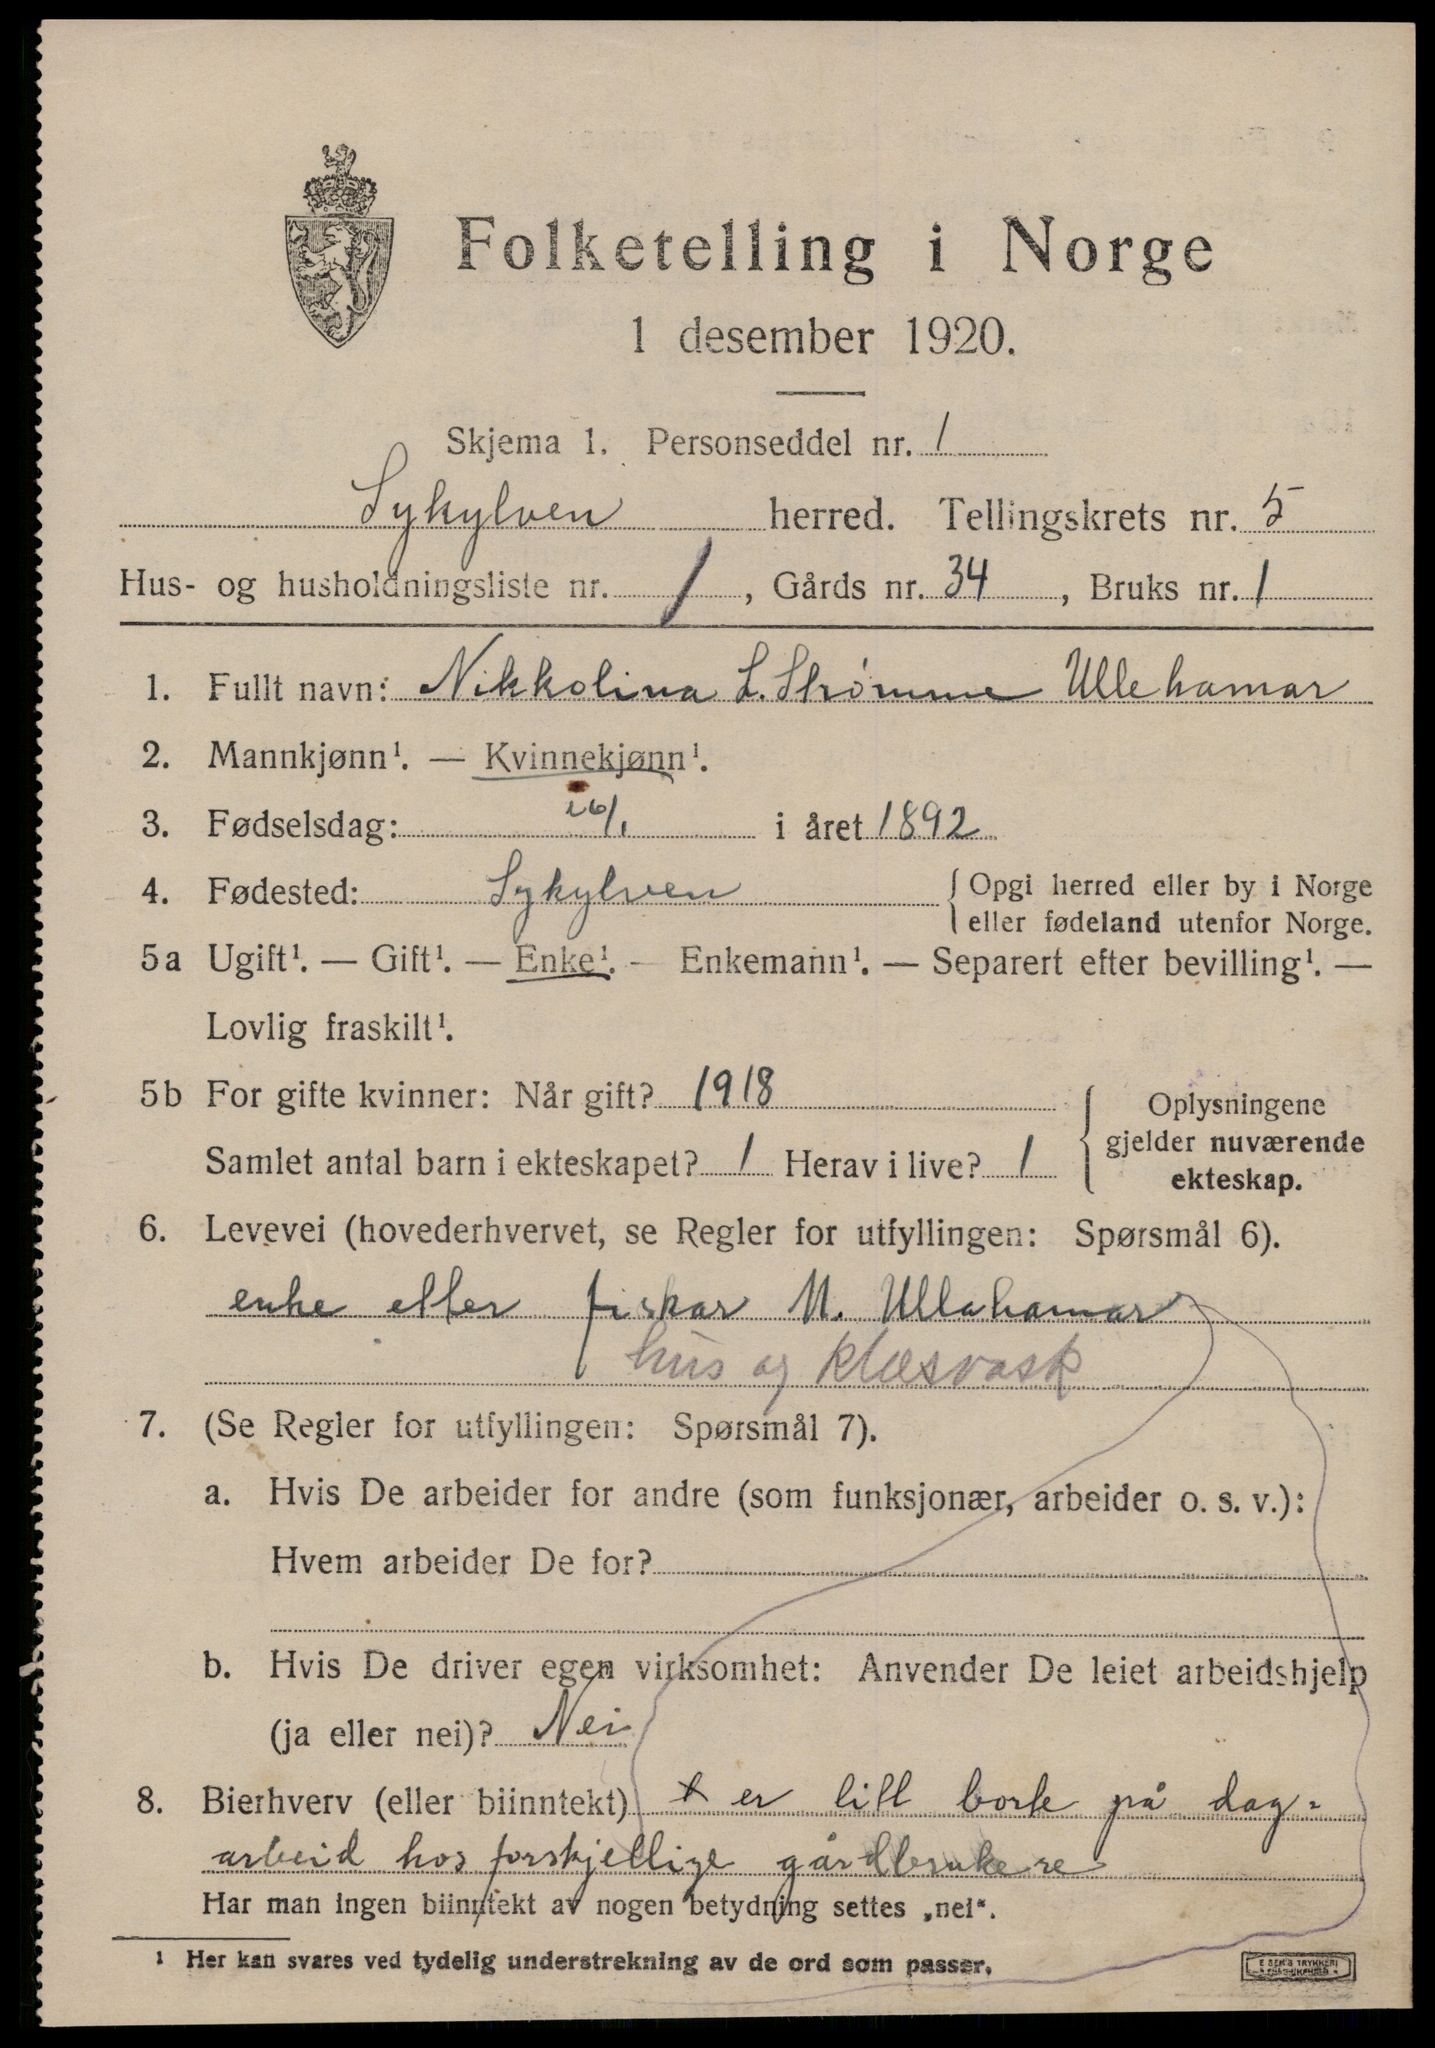 Folketelling i Norge
1 desember 1920.
Skjema 1. Personseddel nr. 1
Sykylven herred. Tellingskrets nr. 5
Hus- og husholdningsliste nr. 1, Gårds nr. 34, Bruks nr. 1
1. Fullt navn: Nikkolina L. Strømme Ullehamar
2. Mannkjønn¹. — Kvinnekjønn¹.
3. Fødselsdag: 26/1 i året 1892
4. Fødested: Sykylven { Opgi herred eller by i Norge
eller fødeland utenfor Norge.
5a Ugift¹. — Gift¹. — Enke¹. — Enkemann¹. — Separert efter bevilling¹. —
Lovlig fraskilt¹.
5b For gifte kvinner: Når gift? 1918
Samlet antal barn i ekteskapet? 1 Herav i live? 1
{ Oplysningene
gjelder nuværende
ekteskap.
6. Levevei (hovederhvervet, se Regler for utfyllingen: Spørsmål 6).
enke etter fiskar M. Ullahamar
hus og klæsvask
7. (Se Regler for utfyllingen: Spørsmål 7).
a. Hvis De arbeider for andre (som funksjonær, arbeider o. s. v.):
Hvem arbeider De for?
b. Hvis De driver egen virksomhet: Anvender De leiet arbeidshjelp
(ja eller nei)? Nei
8. Bierhverv (eller biinntekt) er litt borte på dag-
arbeid hos forskjellige gårdbrukere
Har man ingen biinntekt av nogen betydning settes „nei“.
¹ Her kan svares ved tydelig understrekning av de ord som passer.